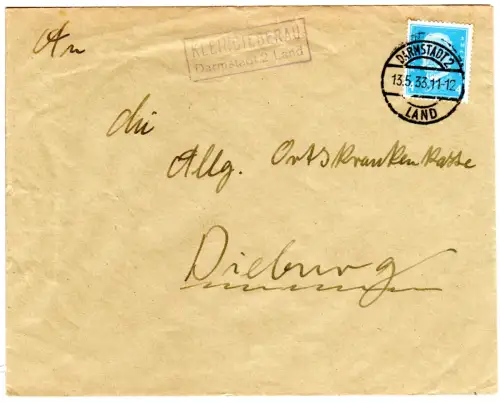 An
KLEINBIEBERAU
Darmstadt 2 Land
DARMSTADT 2
13.5.33.11-12
LAND
die
Allg. Ortskrankenkasse
Dieburg